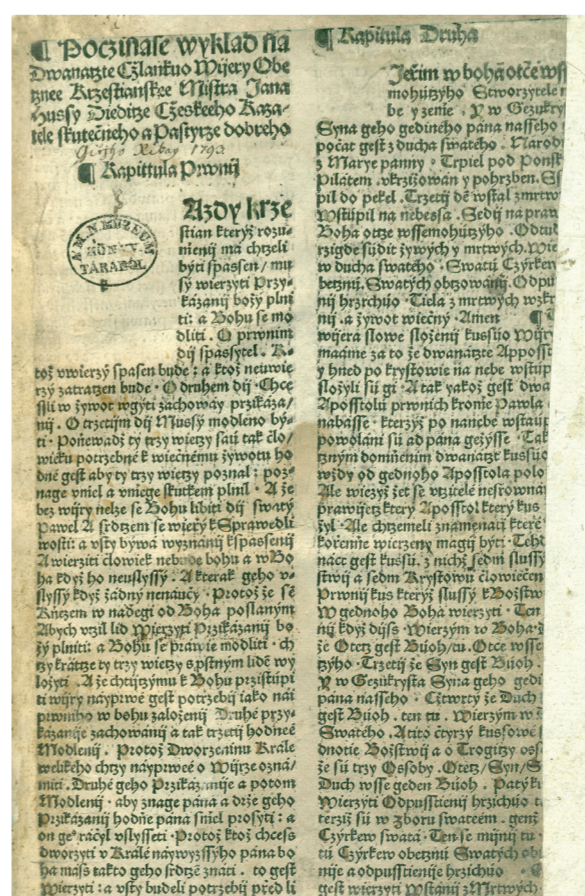 ¶ Poczinase wyklad na
Dwanatzte Cžlankuo Wijery Obe
tznee Krzestianskee Mistra Jana
Hussy Dieditze Cžeskeeho Kaza-
tele skutečneho a Pastyrze dobreho
¶ Kapittula Prwnij
Azdy krze
stian kteryž rozu-
nienij ma chtzeli
byti spassen / mu
sý wierzyti Przy-
kázanij božy plni
ti: a Bohu se mo
dliti. O prwnim
dij spasytel. K-
tož vwierzý spasen bude: a ktož neuwie
rzý zatratzen bude. O druhem dij. Chce
ssli w žywot wgyti zachoway przikáza/
nij. O trzetijm dij Mussý modleno bý-
ti. Poňewadž ty trzy wietzy saü tak čło/
wieku potrzebné k wiečnému žywotu ho
dné gest aby ty trzy wietzy poznal: poz-
nage vmel a vmege skutkem plnil. A že
bez wijry nelze se Bohu libiti dij swatý
Pawel A srdtzem se wierzý k Sprawedli
wosti: a vsty býwá wyznánij k spassenij
A wierziti človiek nebude bohu a w Bo
ha když ho neuslyssý. A kterak geho v-
slyssý když žádný nenaučý. Protož že sě
Kňezem w nadegi od Boha poslaným
Abych včil lid Wierzyti Przikázanij bo
žý plniti: a Bohu se prawie modliti. ch
tzy krátze ty trzy wietzy s pstným lidé wy
ložyti. A že chtijtzýmu k Bohu przistúpi
ti wijry nayprwé gest potrzebij iako nai
prwniho w bohu založenij Druhé przy-
kázanije zachowánij a tak trzetij hodneé
Modlenij. Protož Dworzeninu Krále
welikého chtzy nayprweé o Wijrze ozná/
miti. Druhé geho Przikázanije a potom
Modlenij. aby znage pána a drže geho
Przikázanij hodne pána sniel prosyti: a
on geº račyl vslysseti. Protož ktož chcess
dworzyti v Krále naywyzssýho pána bo
ha mass takto geho srdtze znáti. to gest
Wierzyti: a vsty budeli potrzebij przed li
¶ Kapitula Druha
Ječim w bohá otče wss
mohútzyho Stworzytele n
be y zenie. Y w Gezukry
Syna geho gedineho pána nasseho
počat gest z ducha swatého. Narodi
z Marye panny. Trpiel pod Ponsk
Pilatem. vkrzižowan y pohrzben. Se
pil do pekel. Trzetij dě wstal z mrtw
Wstúpil na nebessa. Sedij na praw
Boha otze wssemohútzyho. Odtud
rzigde súdit žywých y mrtwých. Wie
w ducha swatého. Swatú Cýrkew
betznij. Swatých obtzowánij. Odpu
nij hrzichúo. Tiela z mrtwých wzkr
nij. a žywot wiečný. Amen ¶
wijera slowe složenij kussúo Wijry
maáme za to že dwanátzte Appossto
y hned po krystowie na nebe wstúp
složyli sú gi. A tak yakož gest dwa
Aposstolú prwnich kromie Pawla
nabásse. kterzýž po nanebe wstaúp
powoláni sú ad pána gežýsse. Tak
tzným domňením dwanatzt kussúo
wždy od gednoho Aposstola polo
Ale wiezýž žet se vtzitelé nesrownáw
prawijetz který Aposstol který kus
žyl. Ale chtzemeli znamenati které
korenie wierzený magij býti. Tehd
náct gest kussú. z nichž sedm slussý
stwij a sedm Krystowu čłowiečen
Prwnij kus kterýž slussý k Božstw
W gednoho Boha wierzyti. Ten
nij když dijš. Wierzým w Boha.
že Otetz gest Búoh / tu. Otce wssem
tzýho. Trzetij že Syn gest Búoh.
Y w Gezukrysta Syna geho gedi
pána nasseho. Cžtwrtý že Duch
gest Búoh. ten tu. Wierzým w S
Swatého. A tito čtyrzý kussowé s
dnotie Božstwij a o Trogitzy oss
že sú trzy Ossoby. Otetz / Syn / S
Duch wsse geden Búoh. Patý ku
Wierzyti Odpusstienij hrzichúo t
terziž sú w zboru swateém. genž
Cýrkew swatá. Ten se mijnij tu.
tú Cýrkew obetznú Swatých ob
nije a odpusstienije hrzichúo
gest wierzyti Wstánij Mrtwých